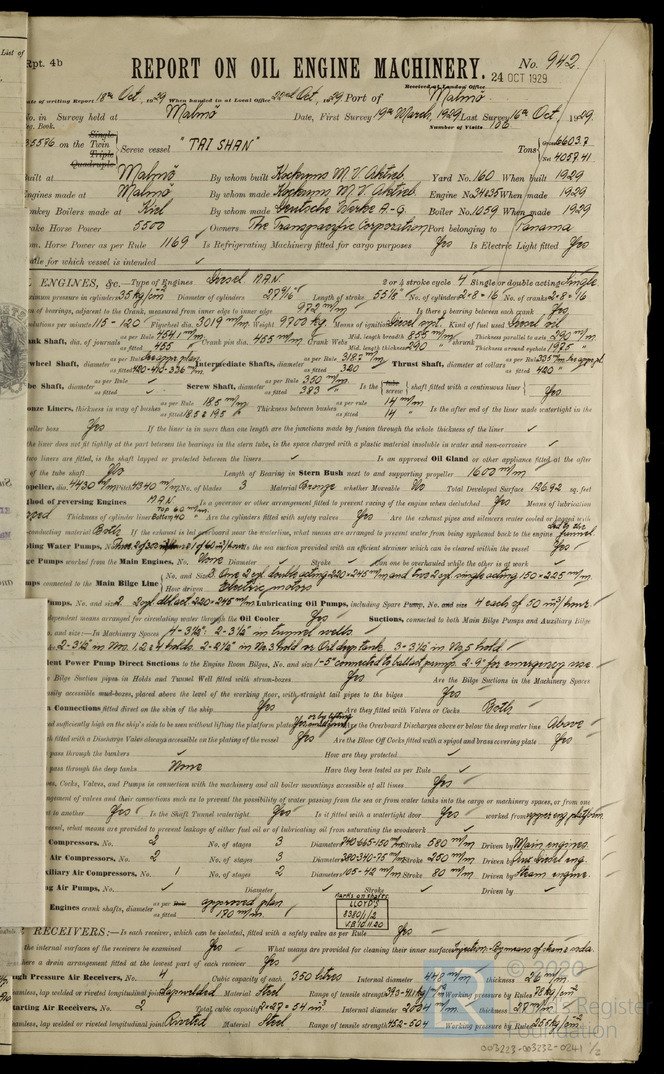 List of
Rpt. 4b
REPORT ON OIL ENGINE MACHINERY.
No. 942
Received at London Office
24 OCT 1929
ate of writing Report 18th Oct, 1929 When handed in at Local Office 22nd Oct, 1929 Port of Malmö
No. in Survey held at Malmö Date, First Survey 19th March, 1929 Last Survey 16th Oct, 1929
eg. Book. Number of Visits 106
35596 on the Single Twin Triple Quadruple Screw vessel "TAI SHAN" Tons Gross 6603.7 Net 4057.41
uilt at Malmö By whom built Kockums M.V. Aktieb. Yard No. 160 When built 1929
ngines made at Malmö By whom made Kockums M.V. Aktieb. Engine No. 34&35 When made 1929
onkey Boilers made at Kiel By whom made Deutsche Werke A-G Boiler No. 1059 When made 1929
rake Horse Power 5500 Owners The Transpacific Corporation Port belonging to Panama
om. Horse Power as per Rule 1169 Is Refrigerating Machinery fitted for cargo purposes Yes Is Electric Light fitted Yes
rade for which vessel is intended
L ENGINES, &c.—Type of Engines Diesel MAN 2 or 4 stroke cycle 4 Single or double acting Single
aximum pressure in cylinders 35 kg/cm² Diameter of cylinders 27 9/16" Length of stroke 55 1/8" No. of cylinders 2-8=16 No. of cranks 2-8=16
n of bearings, adjacent to the Crank, measured from inner edge to inner edge 972 m/m Is there a bearing between each crank Yes
volutions per minute 115-120 Flywheel dia. 3019 m/m Weight 9700 kgs Means of ignition Diesel Kind of fuel used Diesel oil
ank Shaft, dia. of journals as per Rule 454.1 m/m as fitted 455 Crank pin dia. 455 m/m Crank Webs Mid. length breadth 855 m/m Mid. length thickness 290 shrunk Thickness parallel to axis 290 m/m Thickness around eyehole 197.5
ywheel Shaft, diameter as per Rule as fitted 420-410-336 m/m Intermediate Shafts, diameter as per Rule 318 m/m as fitted 320 Thrust Shaft, diameter at collars as per Rule 335 m/m as fitted 420
be Shaft, diameter as per Rule as fitted Screw Shaft, diameter as per Rule 350 m/m as fitted 383 Is the tube screw shaft fitted with a continuous liner Yes
onze Liners, thickness in way of bushes as per Rule 18.5 m/m as fitted 18.5 & 19.5 Thickness between bushes as per rule 14 m/m as fitted 14 Is the after end of the liner made watertight in the
eller boss Yes If the liner is in more than one length are the junctions made by fusion through the whole thickness of the liner
the liner does not fit tightly at the part between the bearings in the stern tube, is the space charged with a plastic material insoluble in water and non-corrosive
two liners are fitted, is the shaft lapped or protected between the liners Is an approved Oil Gland or other appliance fitted at the after
of the tube shaft Yes Length of Bearing in Stern Bush next to and supporting propeller 1600 m/m
opeller, dia. 4430 m/m Pitch 4340 m/m No. of blades 3 Material Bronze whether Moveable No Total Developed Surface 126.92 sq. feet
thod of reversing Engines MAN Is a governor or other arrangement fitted to prevent racing of the engine when declutched Yes Means of lubrication
Thickness of cylinder liners Top 60 m/m Bottom 40 Are the cylinders fitted with safety valves Yes Are the exhaust pipes and silencers water cooled or lagged with
conducting material Both If the exhaust is led overboard near the waterline, what means are arranged to prevent water from being syphoned back to the engine funnel
ling Water Pumps, No. Is the sea suction provided with an efficient strainer which can be cleared within the vessel Yes
ge Pumps worked from the Main Engines, No. None Diameter Stroke Can one be overhauled while the other is at work
mps connected to the Main Bilge Line No. and Size 3. One 2 cyl. double acting 220×245 m/m and two 2 cyl. single acting 150×225 m/m How driven Electric motors
Pumps, No. and size 2. 2 cyl. dbl. act. 220×245 m/m Lubricating Oil Pumps, including Spare Pump, No. and size 4 each of 50 m³/hour
dependent means arranged for circulating water through the Oil Cooler Yes Suctions, connected to both Main Bilge Pumps and Auxiliary Bilge
o. and size:—In Machinery Spaces 4-3½", 2-3½" in tunnel wells
2-3½" in Nos. 1, 2 & 4 holds. 2-2½" in No 3 hold 3-3½" in No. 5 hold
ent Power Pump Direct Suctions to the Engine Room Bilges, No. and size 1-5" connected to ballast pump. 2-9" for emergency use
e Bilge Suction pipes in Holds and Tunnel Well fitted with strum-boxes Yes Are the Bilge Suctions in the Machinery Spaces
easily accessible mud-boxes, placed above the level of the working floor, with straight tail pipes to the bilges Yes
a Connections fitted direct on the skin of the ship Yes Are they fitted with Valves or Cocks Both
ed sufficiently high on the ship's side to be seen without lifting the platform plates Yes or by lifting Are the Overboard Discharges above or below the deep water line Above
ch fitted with a Discharge Valve always accessible on the plating of the vessel Yes Are the Blow Off Cocks fitted with a spigot and brass covering plate Yes
pass through the bunkers How are they protected
pass through the deep tanks None Have they been tested as per Rule
es, Cocks, Valves, and Pumps in connection with the machinery and all boiler mountings accessible at all times Yes
angement of valves and their connections such as to prevent the possibility of water passing from the sea or from water tanks into the cargo or machinery spaces, or from one
nt to another Yes Is the Shaft Tunnel watertight Yes Is it fitted with a watertight door Yes worked from upper eng. platform
vessel, what means are provided to prevent leakage of either fuel oil or of lubricating oil from saturating the woodwork
Compressors, No. 2 No. of stages 3 Diameters 740-665-150 m/m Stroke 580 m/m Driven by Main engines
Air Compressors, No. 2 No. of stages 3 Diameters 380-340-75 m/m Stroke 250 m/m Driven by
xiliary Air Compressors, No. 1 No. of stages 2 Diameters 105-42 m/m Stroke 80 m/m Driven by Steam engine
ng Air Pumps, No. Diameter Stroke Driven by
Engines crank shafts, diameter as per Rule approved plan as fitted 170 m/m
Marks on shafts:
LLOYD'S
8380/1/2
VB 10.11.20
R RECEIVERS:—Is each receiver, which can be isolated, fitted with a safety valve as per Rule Yes
the internal surfaces of the receivers be examined Yes What means are provided for cleaning their inner surfaces Injection by means of steam & soda
here a drain arrangement fitted at the lowest part of each receiver Yes
gh Pressure Air Receivers, No. 4 Cubic capacity of each 350 litres Internal diameter 448 m/m thickness 26 m/m
eamless, lap welded or riveted longitudinal joint Lapwelded Material Steel Range of tensile strength Working pressure by Rules 78 kg/cm²
tarting Air Receivers, No. 2 Total cubic capacity 2×27=54 m³ Internal diameter thickness 27 m/m
eamless, lap welded or riveted longitudinal joint Riveted Material Steel Range of tensile strength 452-504 Working pressure by Rules 25.5 kg/cm²
© 2020
Lloyd's Register
Foundation
003223-003232-0241 1/2